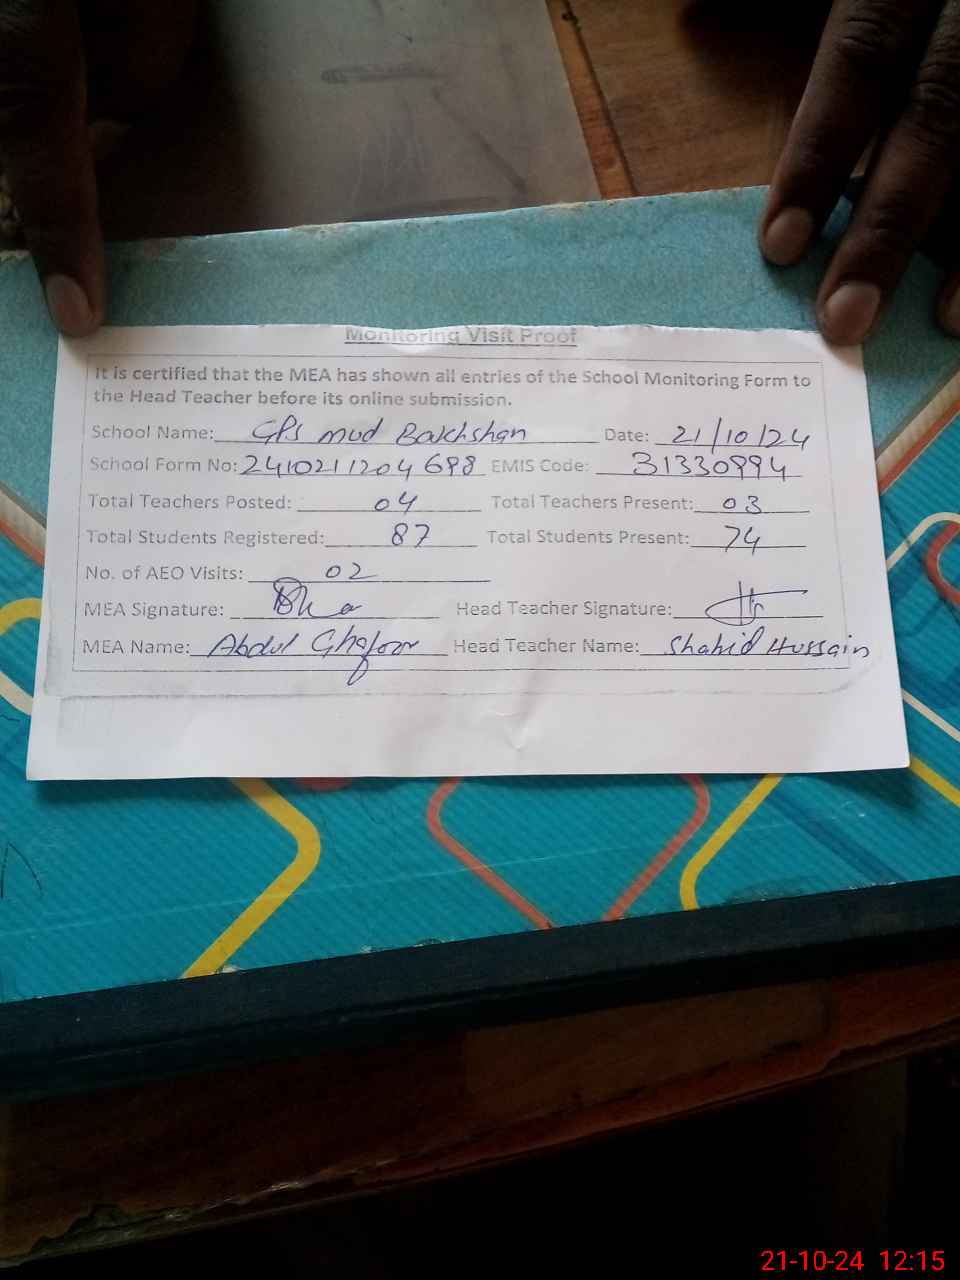 Monitoring Visit Proof
It is certified that the MEA has shown all entries of the School Monitoring Form to
the Head Teacher before its online submission.
School Name: GPS mud Bakhshan Date: 21/10/24
School Form No: 2410211204698 EMIS Code: 31330994
Total Teachers Posted: 04 Total Teachers Present: 03
Total Students Registered: 87 Total Students Present: 74
No. of AEO Visits: 02
MEA Signature: Head Teacher Signature:
MEA Name: Abdul Ghafoor Head Teacher Name: Shahid Hussain
21-10-24 12:15